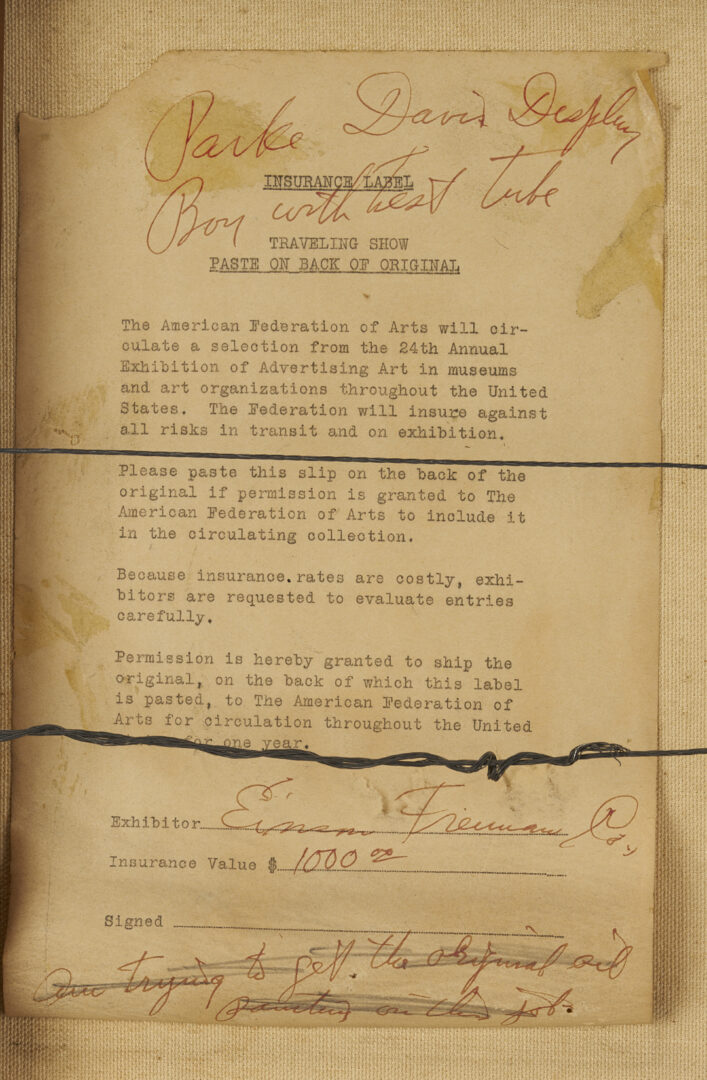 Parke Davis Display
INSURANCE LABEL
Boy with test tube
TRAVELING SHOW
PASTE ON BACK OF ORIGINAL
The American Federation of Arts will cir-
culate a selection from the 24th Annual
Exhibition of Advertising Art in museums
and art organizations throughout the United
States. The Federation will insure against
all risks in transit and on exhibition.
Please paste this slip on the back of the
original if permission is granted to The
American Federation of Arts to include it
in the circulating collection.
Because insurance.rates are costly, exhi-
bitors are requested to evaluate entries
carefully.
Permission is hereby granted to ship the
original, on the back of which this label
is pasted, to The American Federation of
Arts for circulation throughout the United
for one year.
Exhibitor Einson Freeman Co.,
Insurance Value $ 1000 00
Signed
Am trying to get the original oil
painting on this job.